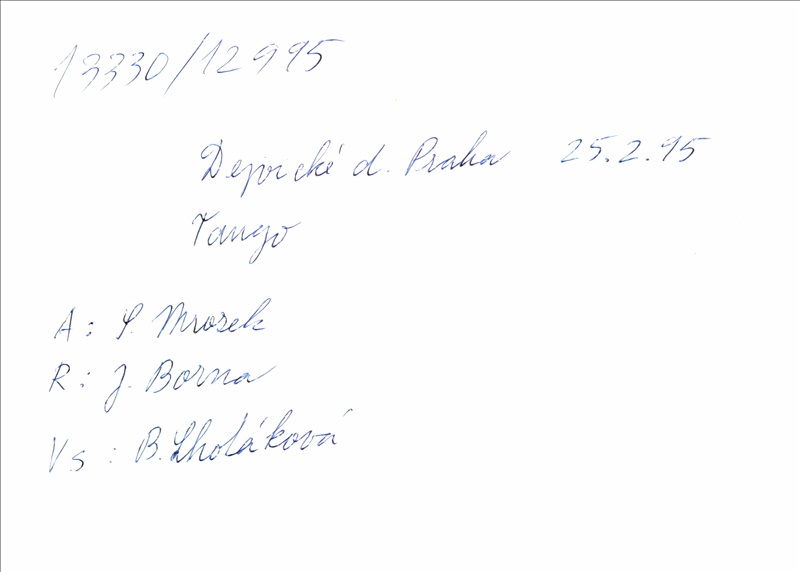 13330/12995
Dejvické d. Praha 25.2.95
Tango
A: S. Mrozek
R: J. Borna
V.s: B. Lhotáková